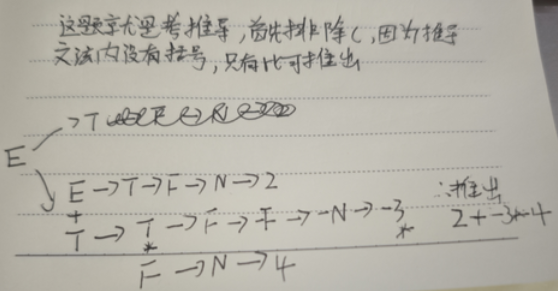 这题就是考推导,首先排除C,因为推导
文法内没有括号,只有 可推出
→T
E
E→T→F→N→2
+
T→T→F→F→-N→-3 ∴推出
* 2+-3*-4
F→N→4